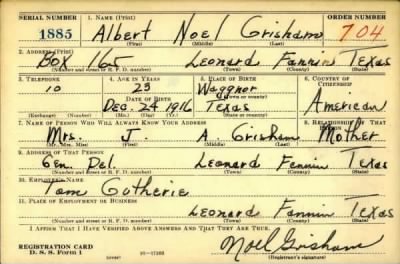 SERIAL NUMBER 1. NAME (Print) ORDER NUMBER
1885 Albert Noel Grisham 704
(First) (Middle) (Last)
2. ADDRESS (Print)
Box 165 Leonard Fannin Texas
(Number and street or R. F. D. number) (Town) (County) (State)
3. TELEPHONE 4. AGE IN YEARS 5. PLACE OF BIRTH 6. COUNTRY OF CITIZENSHIP
23 Waggnor
DATE OF BIRTH (Town or county)
Dec. 24, 1916 Texas American
(Exchange) (Number) (Mo.) (Day) (Yr.) (State or country)
7. NAME OF PERSON WHO WILL ALWAYS KNOW YOUR ADDRESS 8. RELATIONSHIP OF THAT PERSON
Mrs. J. A. Grisham Mother
(Mr., Mrs., Miss) (First) (Middle) (Last)
9. ADDRESS OF THAT PERSON
Gen. Del. Leonard Fannin Texas
(Number and street or R. F. D. number) (Town) (County) (State)
10. EMPLOYER'S NAME
Tom Gotherie
11. PLACE OF EMPLOYMENT OR BUSINESS
Leonard Fannin Texas
(Number and street or R. F. D. number) (Town) (County) (State)
I AFFIRM THAT I HAVE VERIFIED ABOVE ANSWERS AND THAT THEY ARE TRUE.
REGISTRATION CARD
D. S. S. Form 1
Noel Grisham
(Registrant's signature)